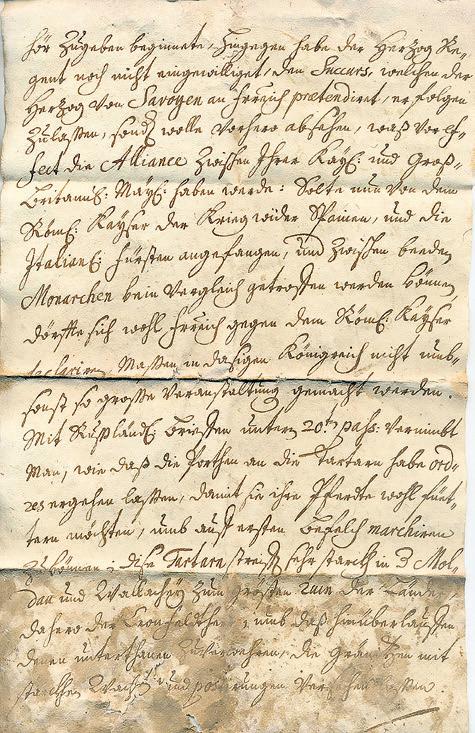 hör Zugeben beginnete, Hingegen habe der Herzog Re-
gent noch nicht eingewilliget, den Succurs, welchen der
Herzog von Savoyen an prætendiret, er folgen
Zulaßen, sond wolle Vorhero absehen, waß vor ef-
fect die Alliance Zwischen Ihrer Kayß: und Groß-
Britanis: Mayß: haben werde: Solte nun von dem
Röm: Kayser der Krieg wider Spainen, und die
Italianß: Fürsten angefangen, und zwischen beeden
Monarchen kein Vergleich getroffen werden können
dörffte sich wohl gegen dem Röm: Kayser
declariren, Maßen in dasigen Königreich nicht umb-
sonst so große Veranstaltung gemacht werden.
Mit Rußländß: Brieffen untern 20ten paß: Vernimbt
Man, wie daß die Porthen an die Tartarn habe ord-
res ergehen laßen, damit sie ihre Pferdte wohl füet-
tern möchten, umb auff ersten befelch marchiren
Zu können; dise Tartarn streiff sehr starck in 3 Mol-
dau und Wallachey zum größten ruin der Länder,
dahero der umb daß hinüberlauffen
denen unterthanen Zuverwehren, die Gräntzen mit
starcken Wacht und postirungen Versehen laßen